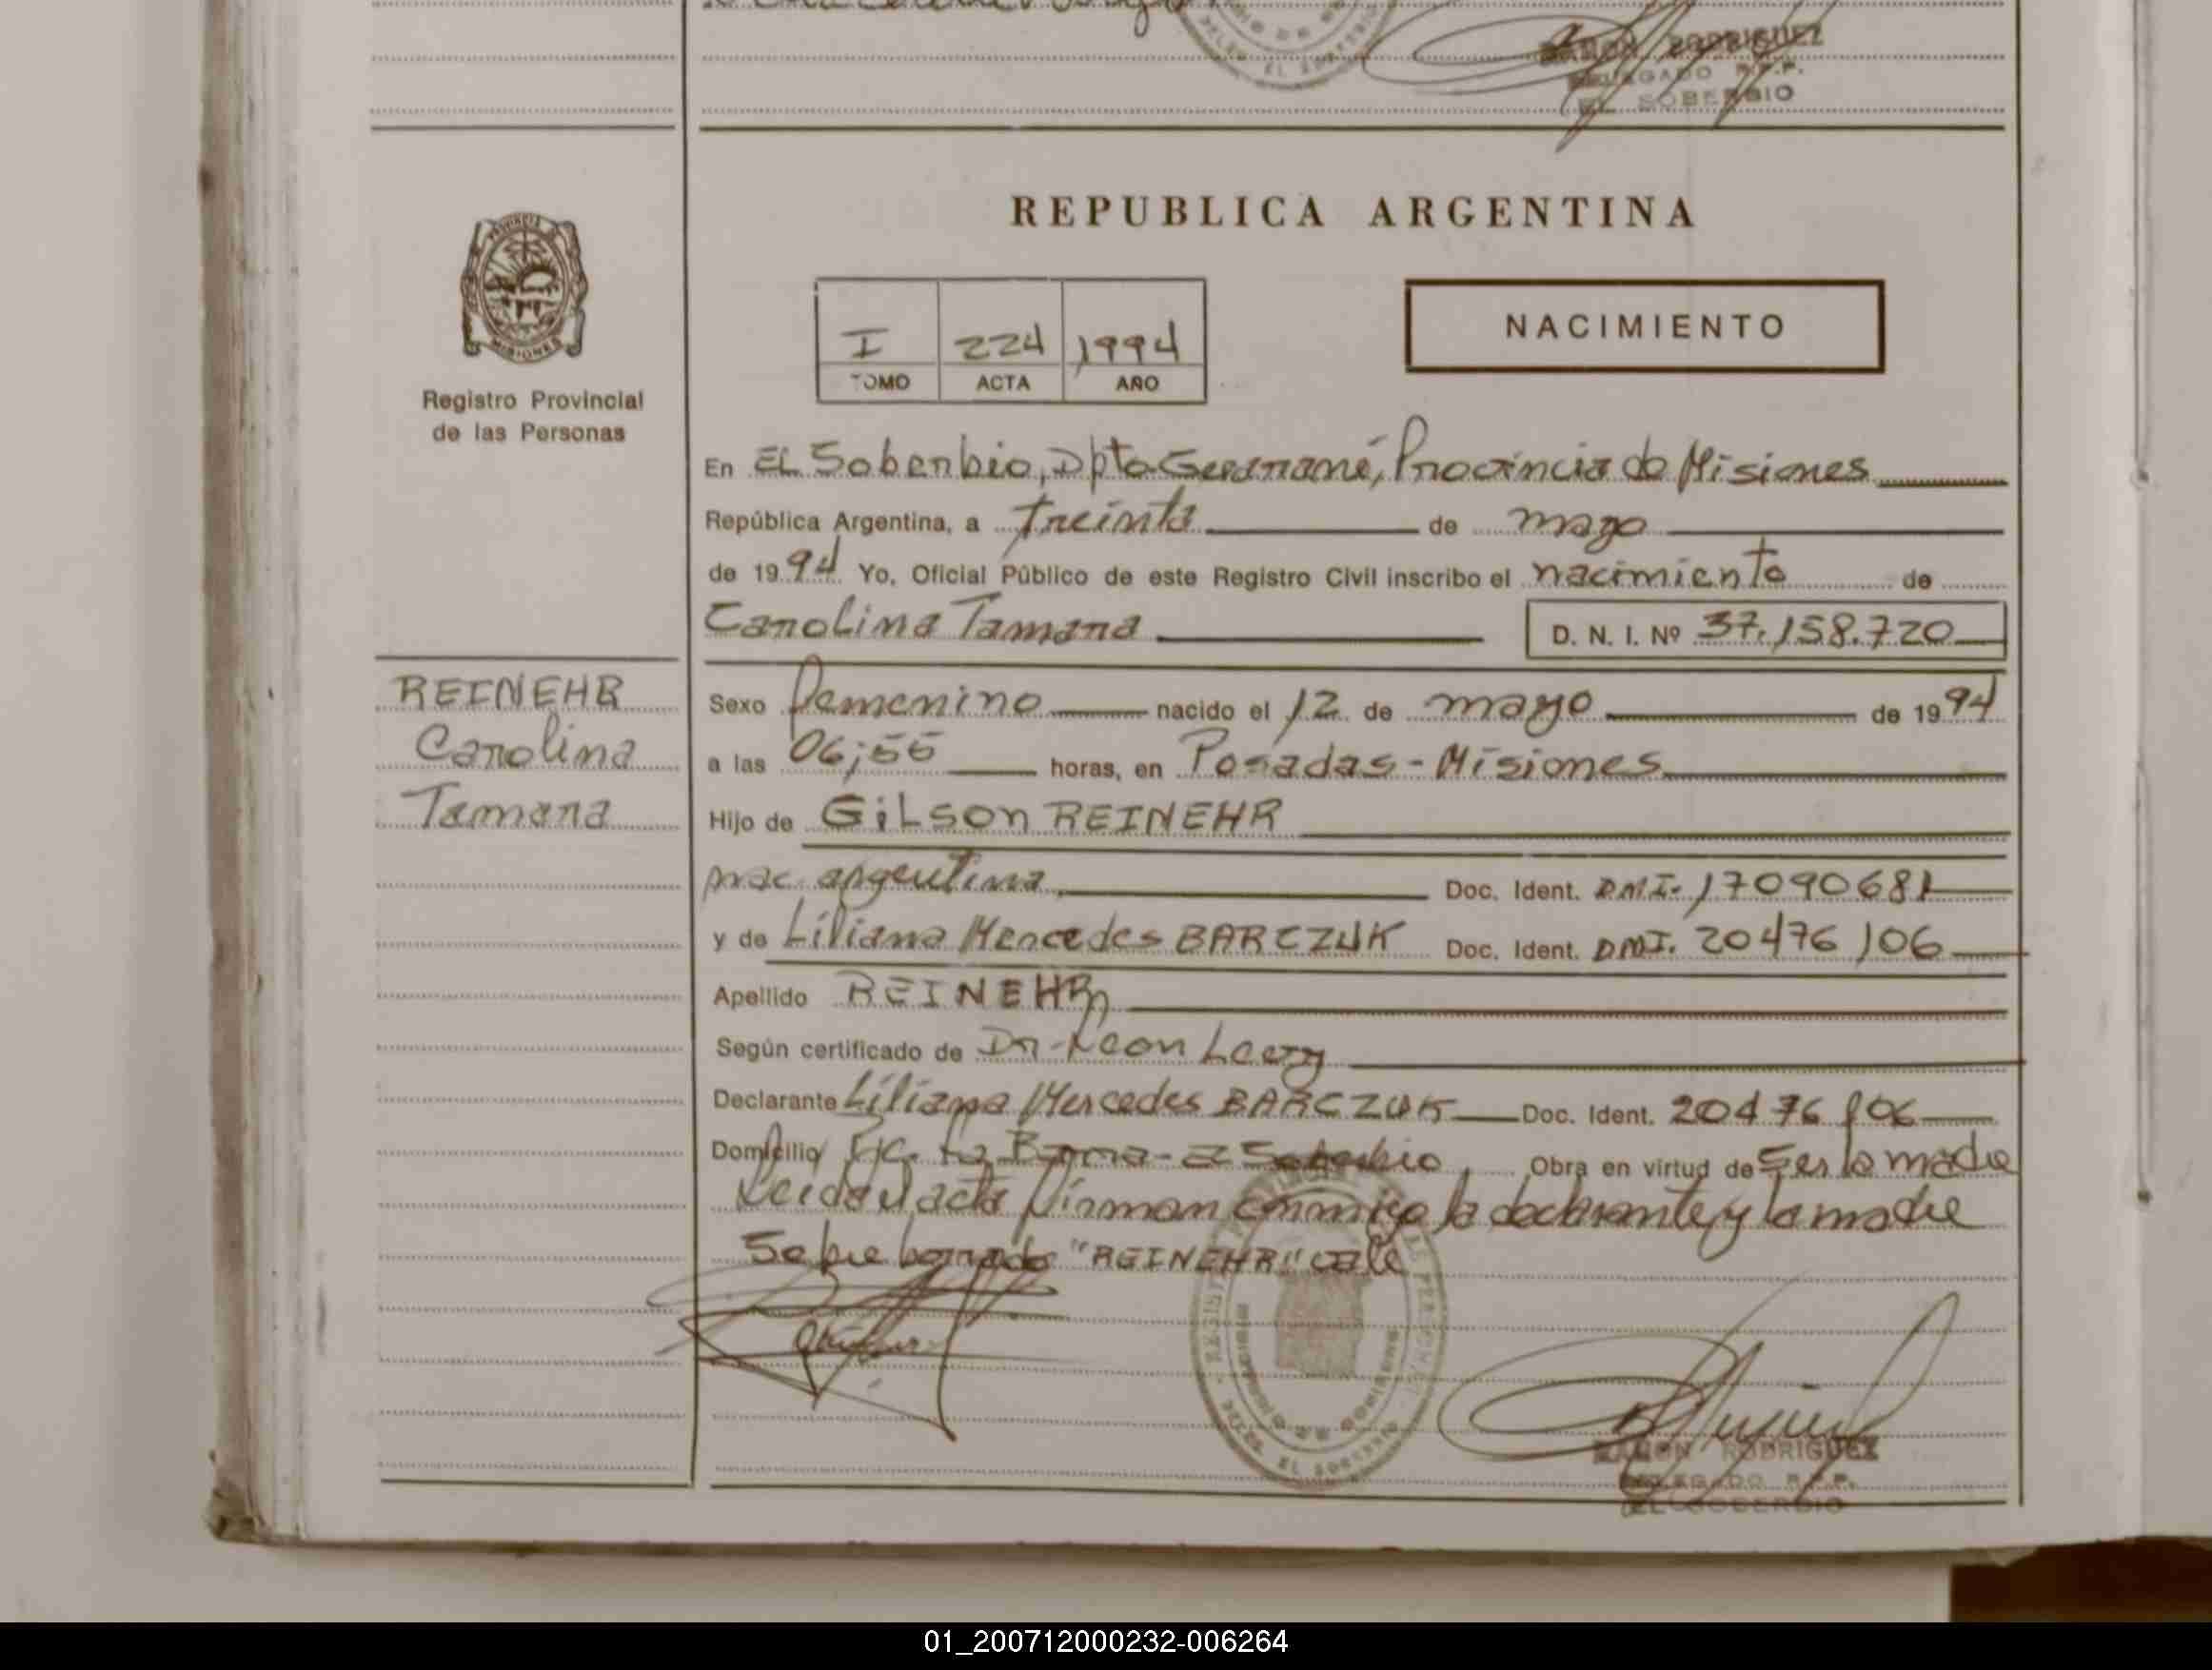 RAMON RODRIGUEZ
DELEGADO R.P.P.
EL SOBERBIO
PROVINCIA DE
MISIONES
Registro Provincial
de las Personas
REPUBLICA ARGENTINA
I 224 1994
TOMO ACTA AÑO
NACIMIENTO
En EL Soberbio, Dpto Guaraní, Provincia de Misiones
República Argentina, a treinta de mayo
de 1994 Yo, Oficial Público de este Registro Civil inscribo el nacimiento de
Carolina Tamara D. N. I. Nº 37.158.720
REINEHR
Carolina
Tamara
Sexo Femenino nacido el 12 de mayo de 1994
a las 06;55 horas, en Posadas - Misiones
Hijo de GiLSon REINEHR
nac. argentina Doc. Ident. DNI. 17090681
y de Liliana Mercedes BARCZUK Doc. Ident. DNI. 20476106
Apellido REINEHR
Según certificado de Dr. Leon
Declarante Liliana Mercedes BARCZUK Doc. Ident. 20476106
Domicilio El Soberbio Obra en virtud de Ser la madre
Leida el acta firman conmigo la declarante y la madre
Sobre borrado "REINEHR" vale
EL SOBERBIO
RAMON RODRIGUEZ
DELEGADO R.P.P.
EL SOBERBIO
01_200712000232-006264